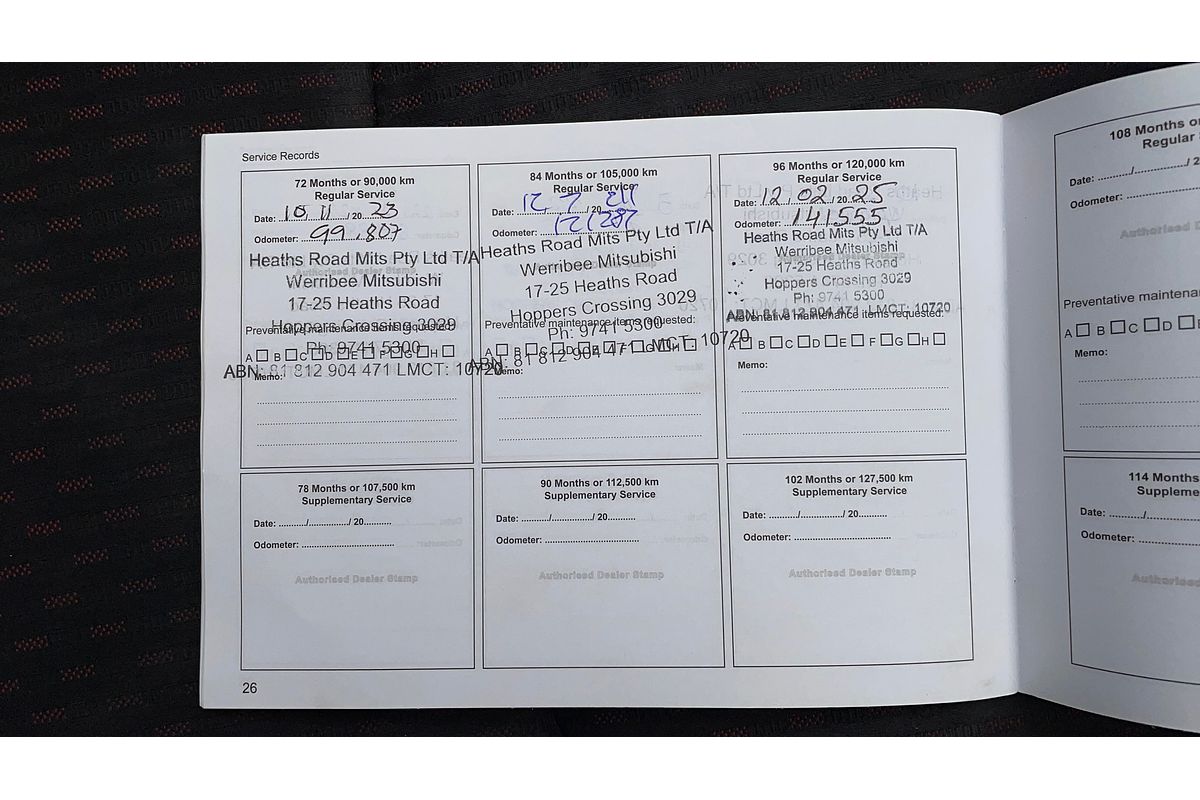 Service Records
72 Months or 90,000 km
Regular Service
Date: 10 / 11 / 20 23
Odometer: 99,807
Authorised Dealer Stamp
Heaths Road Mits Pty Ltd T/A
Werribee Mitsubishi
17-25 Heaths Road
Hoppers Crossing 3029
Preventative maintenance items requested:
Ph: 9741 5300
A B C D E F G H
ABN: 81 812 904 471 LMCT: 10720
Memo:
84 Months or 105,000 km
Regular Service
Date: 12 / 7 / 20
Odometer: 121287
Heaths Road Mits Pty Ltd T/A
Werribee Mitsubishi
17-25 Heaths Road
Hoppers Crossing 3029
Preventative maintenance items requested:
Ph: 9741 5300
A B C D E F G H
ABN: 81 812 904 471 LMCT: 10720
Memo:
96 Months or 120,000 km
Regular Service
Date: 12 / 02 / 20 25
Odometer: 141555
Heaths Road Mits Pty Ltd T/A
Werribee Mitsubishi
17-25 Heaths Road
Hoppers Crossing 3029
Ph: 9741 5300
ABN: 81 812 904 471 LMCT: 10720
Preventative maintenance items requested:
A B C D E F G H
Memo:
78 Months or 107,500 km
Supplementary Service
Date: ........../................/ 20..........
Odometer: ..................................
Authorised Dealer Stamp
90 Months or 112,500 km
Supplementary Service
Date: ........../................/ 20..........
Odometer: ..................................
Authorised Dealer Stamp
102 Months or 127,500 km
Supplementary Service
Date: ........../................/ 20..........
Odometer: ..................................
Authorised Dealer Stamp
26
108 Months or
Regular
Date: ........../................/ 2
Odometer: ..................
Authorised
Preventative
A B C D E
Memo:
114 Months
Supplemen
Date: ........../..........
Odometer: ..............
Authorised